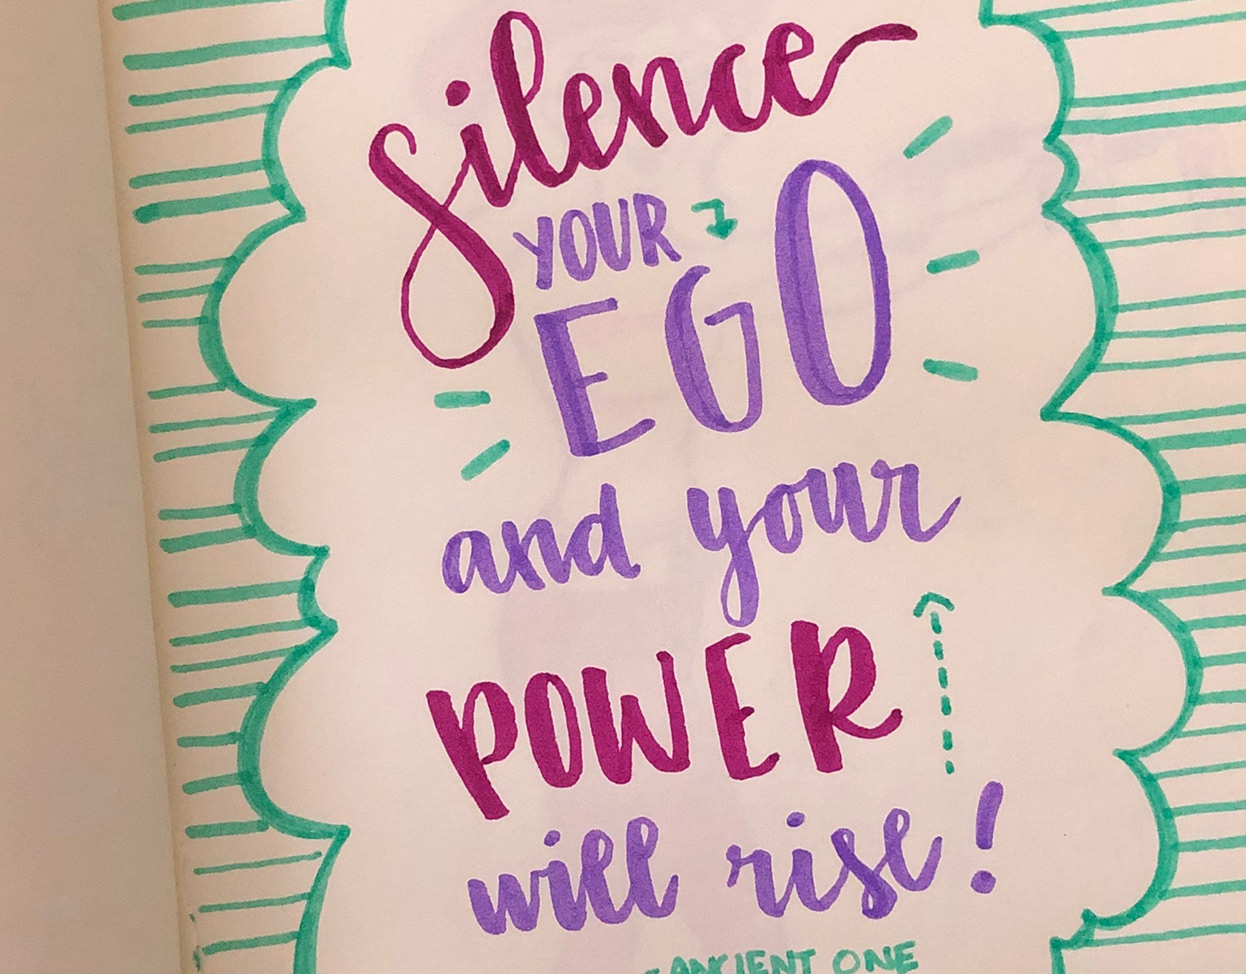 silence
YOUR
EGO
and your
POWER
will rise!
- ANCIENT ONE